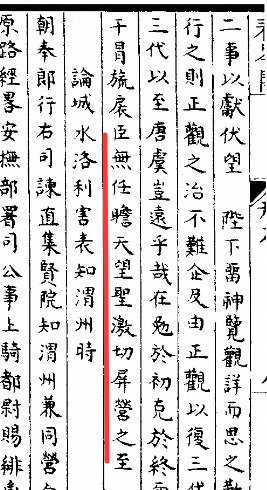 二事以獻伏望 陛下畱神覽觀詳而思之
行之則正觀之治不難企及由正觀以復三代
三代以至唐虞豈遠乎哉在勉於初克於終
干冒旒扆臣無任瞻天望聖激切屏營之至
論城水洛利害表知渭州時
朝奉郎行右司諫直集賢院知渭州兼同營
原路經畧安撫部署司公事上騎都尉賜緋